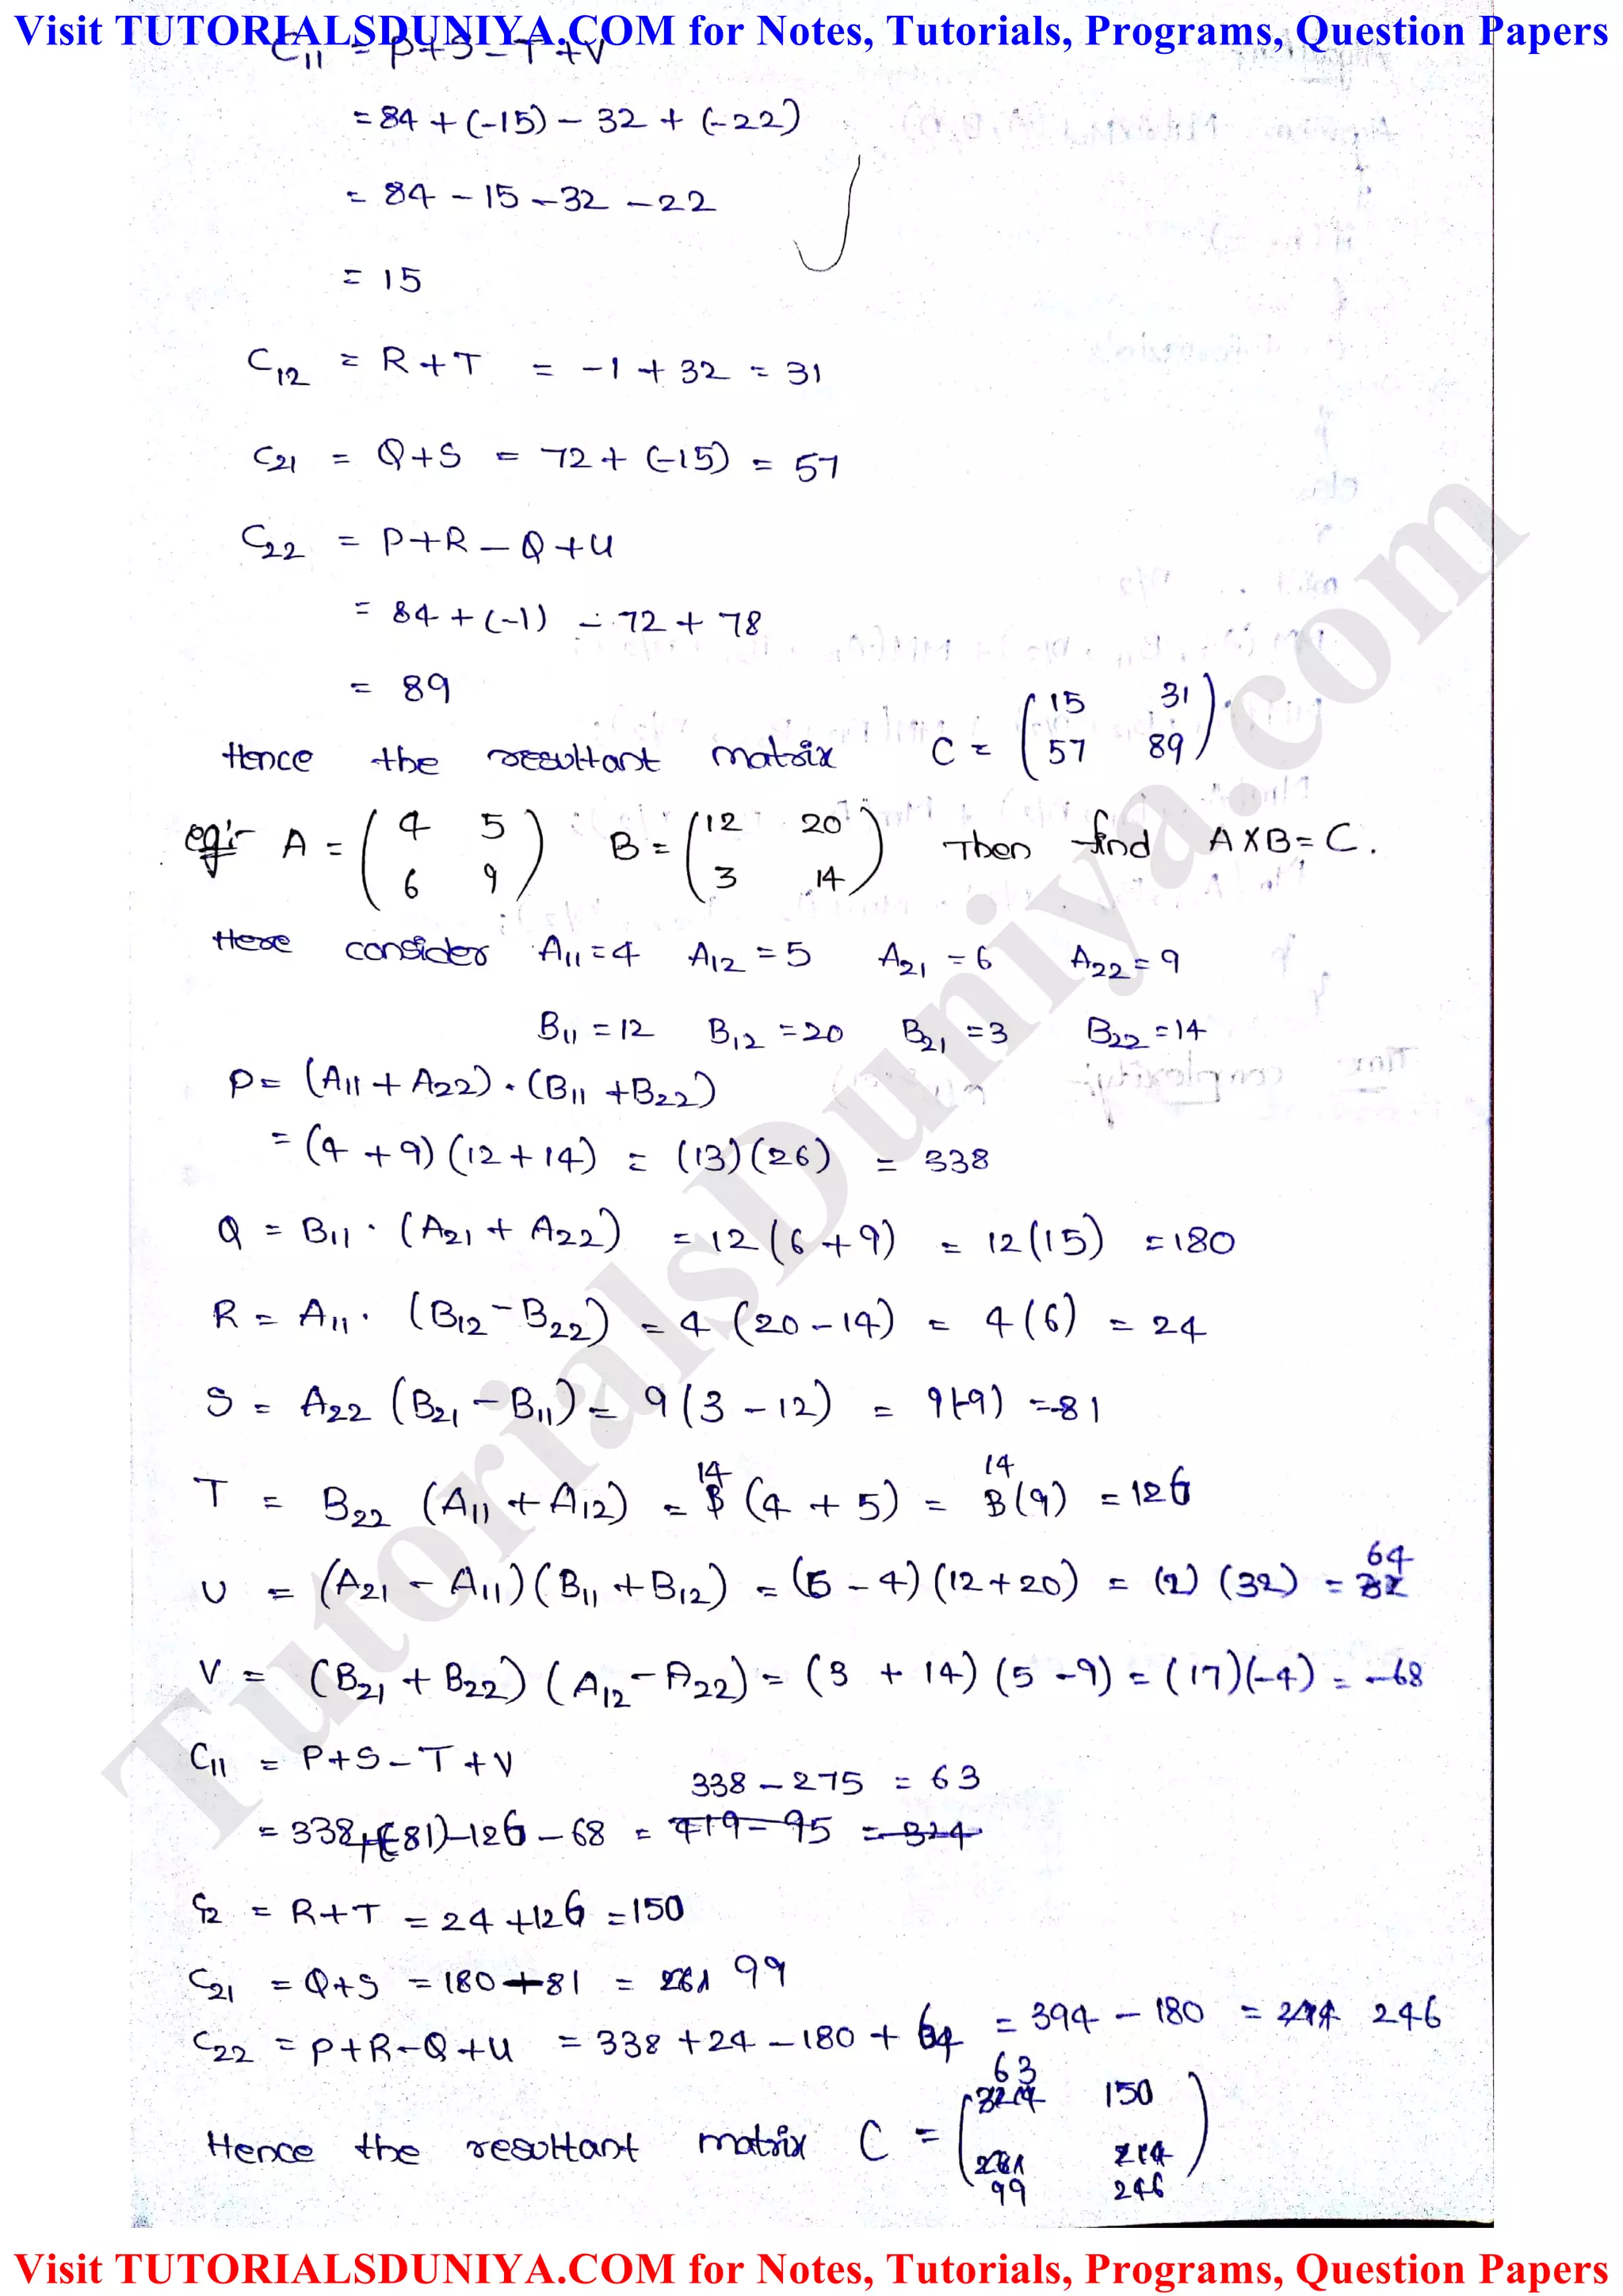 Visit TUTORIALSDUNIYA.COM for Notes, Tutorials, Programs, Question Papers
C11 = P+S-T+V
= 84 + (-15) - 32 + (-22)
= 84 - 15 - 32 - 22
= 15
C12 = R+T = -1 + 32 = 31
C21 = Q+S = 72 + (-15) = 57
C22 = P+R-Q+U
= 84 + (-1) - 72 + 78
= 89
Hence the resultant matrix C = (15 31
57 89)
eg:- A = (4 5
6 9) B = (12 20
3 14) Then find A X B = C.
Here consider A11 = 4 A12 = 5 A21 = 6 A22 = 9
B11 = 12 B12 = 20 B21 = 3 B22 = 14
P = (A11 + A22) . (B11 + B22)
= (4 + 9) (12 + 14) = (13) (26) = 338
Q = B11 . (A21 + A22) = 12 (6 + 9) = 12 (15) = 180
R = A11 . (B12 - B22) = 4 (20 - 14) = 4 (6) = 24
S = A22 (B21 - B11) = 9 (3 - 12) = 9(-9) = -81
T = B22 (A11 + A12) = 14 (4 + 5) = 14 (9) = 126
U = (A21 - A11) (B11 + B12) = (6 - 4) (12 + 20) = (2) (32) = 64
V = (B21 + B22) (A12 - A22) = (3 + 14) (5 - 9) = (17)(-4) = -68
C11 = P+S-T+V
338 - 275 = 63
= 338+(-81)-126-68 = 419-95 = 324
C12 = R+T = 24 + 126 = 150
C21 = Q+S = 180 + 81 = 261 99
C22 = P+R-Q+U = 338 + 24 - 180 + 64 = 394 - 180 = 214 246
Hence the resultant matrix C = (63 324 150
261 214
99 246)
TutorialsDuniya.com
Visit TUTORIALSDUNIYA.COM for Notes, Tutorials, Programs, Question Papers